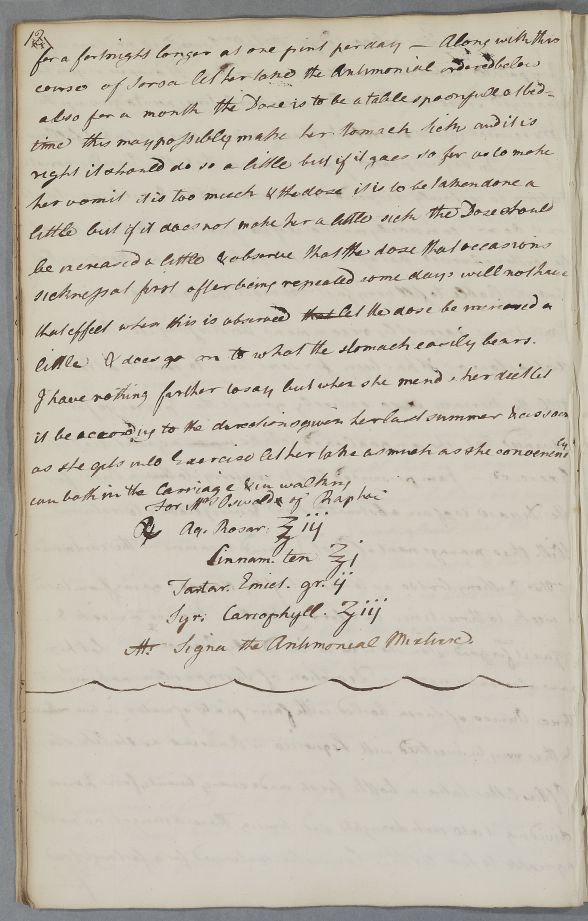 12
for a fortnight longer at one pint per day — Along with this
course of Sarsa let her take the Antimonial ordered below
also for a month the Dose is to be a table spoonfull at bed=
time this may possibly make her stomach sick and it is
right it should do so a little but if it goes so far as to make
her vomit it is too much & the dose it is to be taken done a
little but if it does not make her a little sick the Dose should
be increased a little & observe that the dose that occasions
sickness at first after being repeated some days will not have
that effect when this is observed that let the dose be increased a
little & does go on to what the stomach easily bears.
I have nothing farther to say but when she mends her diet let
it be according to the directions given her last summer & as soon
as she gets into Exercise let her take as much as she conveniently
can both in the Carriage & in walking
For Mrs Oswald of
℞ Aq. Rosar. ℥iij
Cinnam. ten ℥j
Tartar. Emet. gr. ij
Syr. Cariophyll. ℥iij
M. Signa the Antimonial Mixture